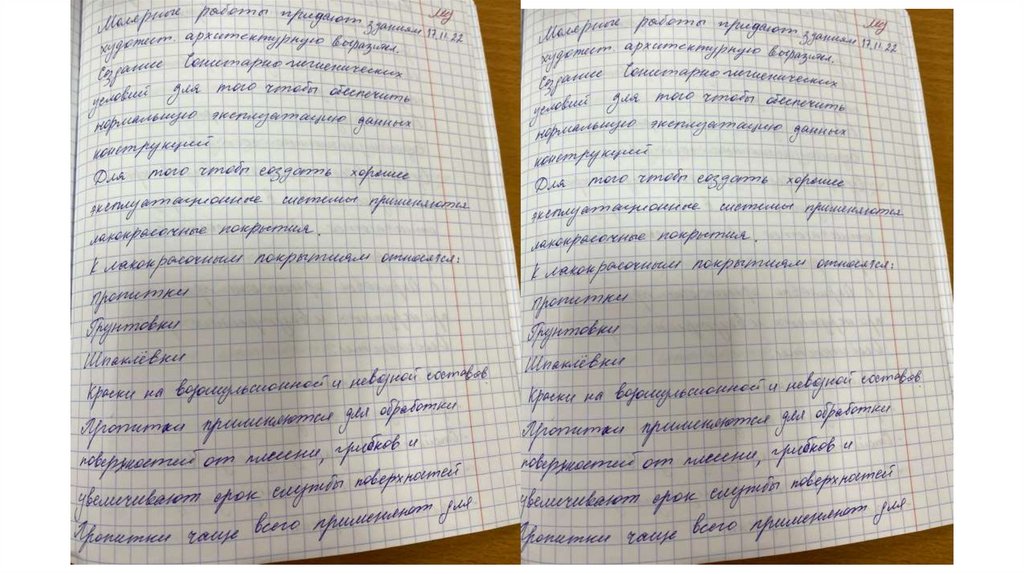 Молярные работы придают зданиям 17.11.22
художест. архитектурную выразит.
Создание Санитарно-гигиенических
условий для того чтобы обеспечить
нормальную эксплуатацию данных
конструкций
Для того чтобы создать хорошие
эксплуатационные системы применяются
лакокрасочные покрытия.
К лакокрасочным покрытиям относятся:
Пропитки
Грунтовки
Шпаклёвки
Краски на водоэмульсионной и неводной составов
Пропитки применяются для обработки
поверхностей от плесени, грибков и
увеличивают срок службы поверхностей
Пропитки чаще всего применяют для
Молярные работы придают зданиям 17.11.22
художест. архитектурную выразит.
Создание Санитарно-гигиенических
условий для того чтобы обеспечить
нормальную эксплуатацию данных
конструкций
Для того чтобы создать хорошие
эксплуатационные системы применяются
лакокрасочные покрытия.
К лакокрасочным покрытиям относятся:
Пропитки
Грунтовки
Шпаклёвки
Краски на водоэмульсионной и неводной составов
Пропитки применяются для обработки
поверхностей от плесени, грибков и
увеличивают срок службы поверхностей
Пропитки чаще всего применяют для